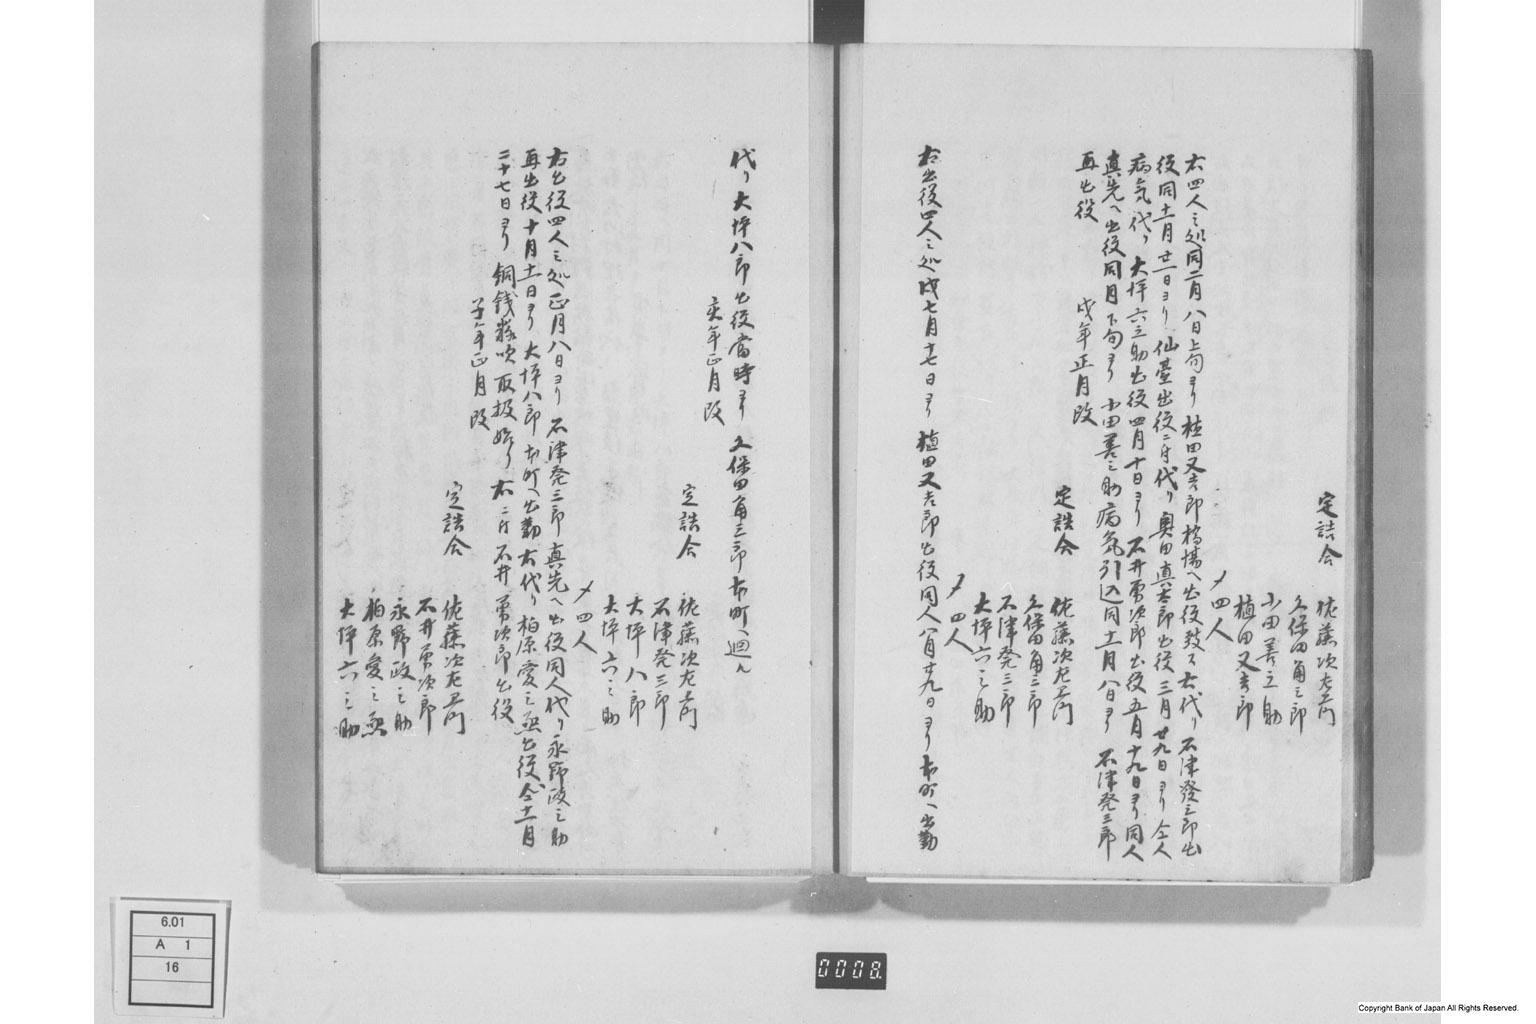 定詰合
佐藤次左衛門
久保田角三郎
小田善之助
植田又吉郎
〆四人
右四人之処同二月八日上旬ゟ植田又吉郎橋場へ出役致ス右代り石津發三郎出
役同十一月廿一日ゟ仙臺出役ニ付代り奥田真太郎出役三月廿九日ゟ仝人
病気代り大坪六之助出役四月十日ゟ石井勇次郎出役五月十九日ゟ同人
真先へ出役同月下旬ゟ小田善之助病気引込同十一月八日ゟ石津発三郎
再出役
戌年正月改
定詰合
佐藤次左衛門
久保田角三郎
石津発三郎
大坪六之助
〆四人
右出役四人之処戌七月十七日ゟ植田又吉郎出役同人八月廿九日ゟ本町へ出勤
代り大坪八郎出役當時ゟ久保田角三郎本町へ廻ル
亥年正月改
定詰合
佐藤次左衛門
石津発三郎
大坪八郎
大坪六之助
〆四人
右出役四人之処正月八日ゟ石津発三郎真先へ出役同人代り永野政之助
再出役十月十一日ゟ大坪八郎本町へ出勤右代り柏原愛之丞出役仝十一月
二十七日ゟ銅銭鋳吹取扱始り右ニ付石井勇次郎出役
子年正月改
定詰合
佐藤次左衛門
石井勇次郎
永野政之助
柏原愛之丞
大坪六之助
6.01
A 1
16
0008.
Copyright Bank of Japan All Rights Reserved.